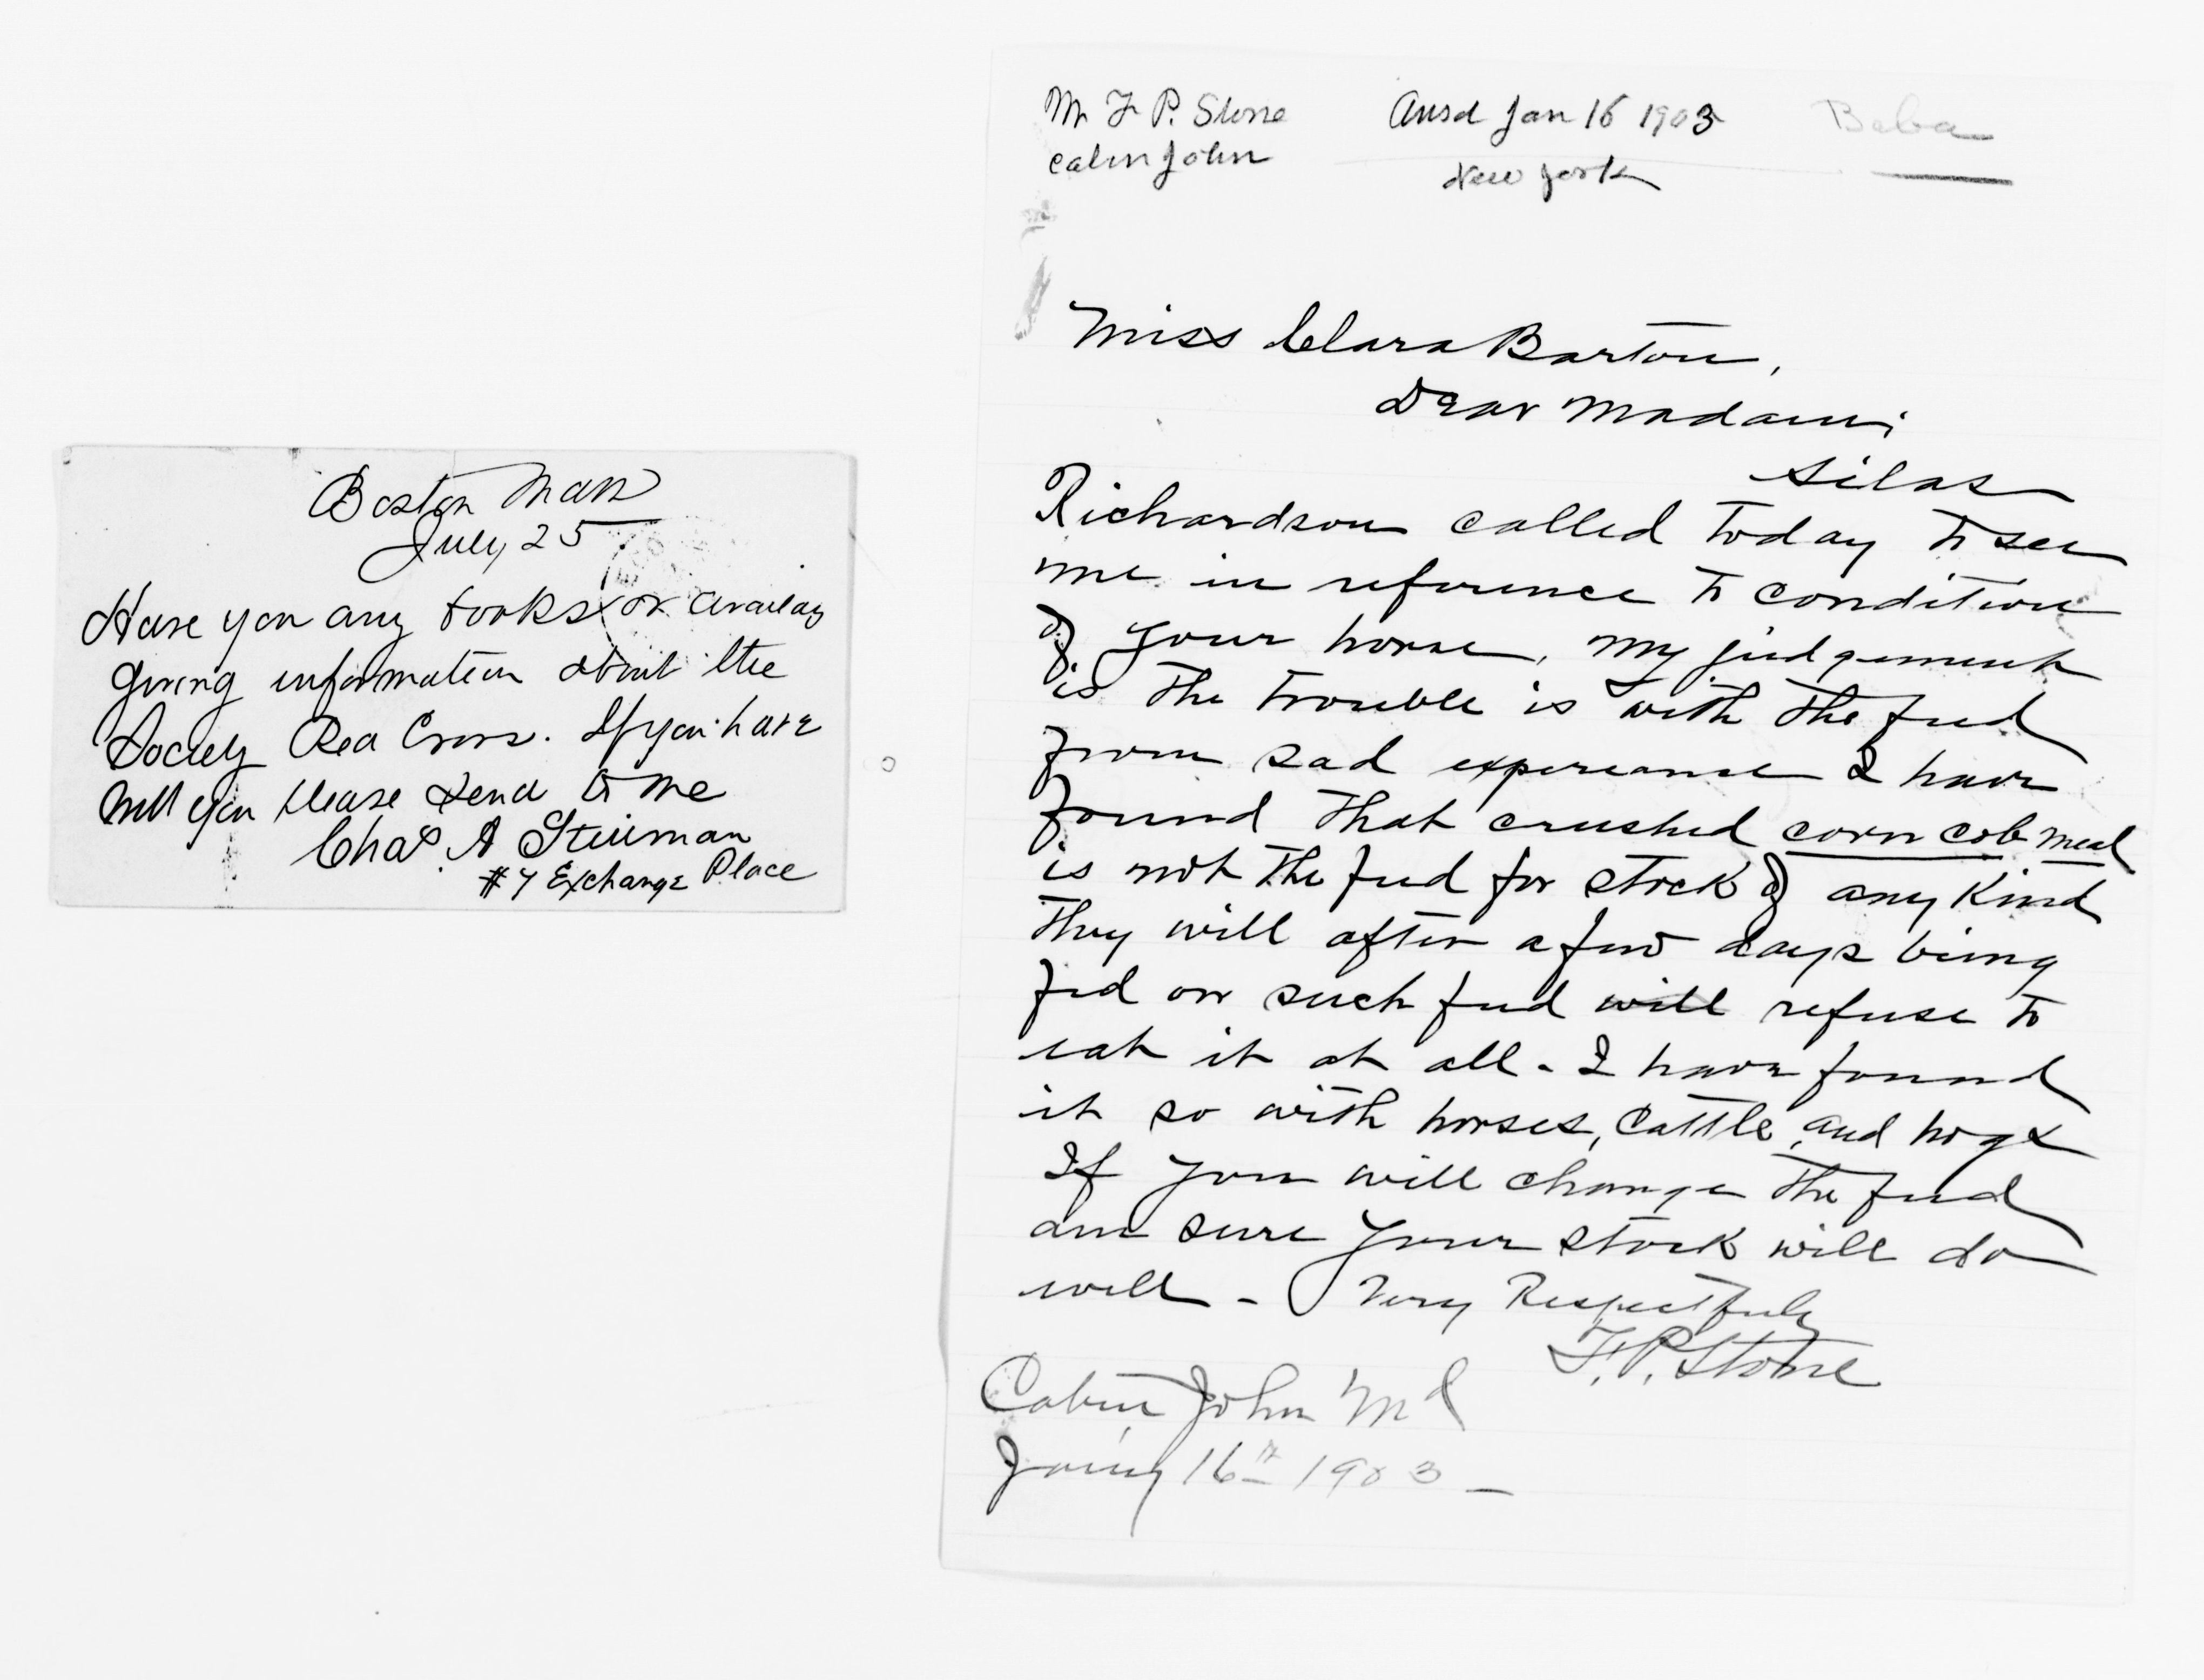 Boston Mass
July 25
Have you any books or
giving information about the
Society Red Cross. If you have
will you please send to me
Chas. A
#7 Exchange Place
Mr F P. Stone
Cabin John
Ansd Jan 16 1903
New York
Baba
Miss Clara Barton,
Dear Madam;
Silas
Richardson called today to see
me in reference to condition
of your horse, my judgement
is the trouble is with the feed
from sad expereance I have
found that crushed corn cob meal
is not the feed for stock of any kind
they will after a few days being
fed on such feed will refuse to
eat it at all - I have found
it so with horses, cattle, and hogs
If you will change the feed
am sure your stock will do
well - Very Respectfuly
F. P. Stone
Cabin John Md
Jany 16th 1903 -